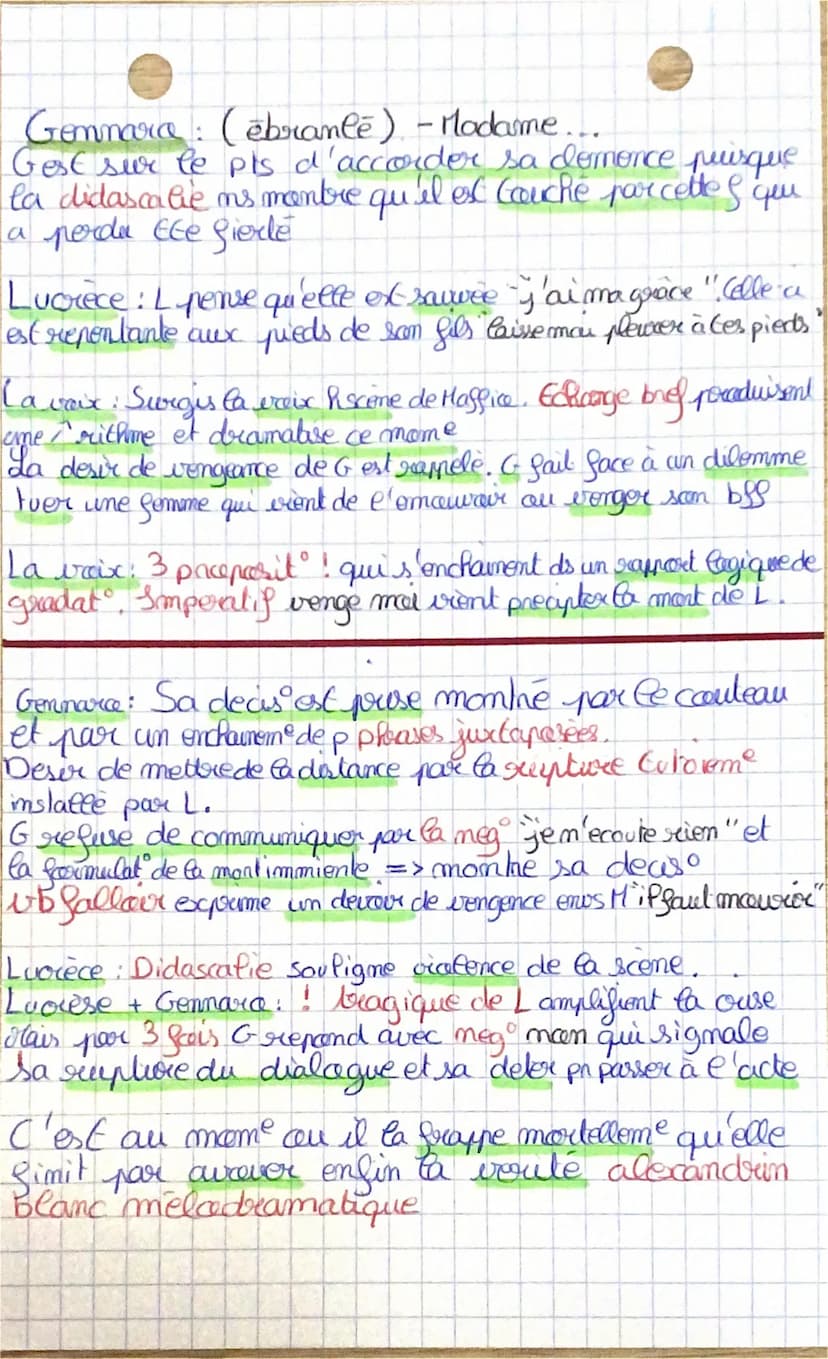 Gennaro : (ébranlé) - Madame...
G est sur le pts d'accorder sa clemence puisque
la didascalie ns montre qu'il est touché par cette f qui
a perdu tte fierté
Lucrèce : L pense qu'elle est sauvée "j'ai ma grâce". Celle-ci
est repentante aux pieds de son fils "laisse moi pleurer à tes pieds"
La voix : Surgis la voix scène de Maffio. Echange bref produisent
une rithme et dramatise ce mome
La desir de vengeance de G est rappelé. G fait face à un dilemme
tuer une femme qui vient de l'emouvoir ou venger son bff
La voix : 3 proposit° ! qui s'enchainent ds un rapport logique de
gradat°. Imperatif venge moi vient precipiter la mort de L.
Gennaro : Sa decis° est prise montré par le couteau
et par un enchaineme de p phrases juxtaposées.
Desir de mettre de la distance par la rupture tutoieme
installé par L.
G refuse de communiquer par la neg° "je n'ecoute rien" et
la formulat° de la mort imminente => montre sa decis°
vb falloir exprime un devoir de vengence envs M "il faut mourir"
Lucrèce : Didascalie souligne violence de la scène.
Lucrèse + Gennaro : ! tragique de L amplifient la crise
Mais par 3 fois G repond avec neg° non qui signale
sa rupture du dialogue et sa deter pr passer à l'acte
C'est au mome ou il la frappe mortelleme qu'elle
finit par avouer enfin la verité alexandrin
blanc mélodramatique